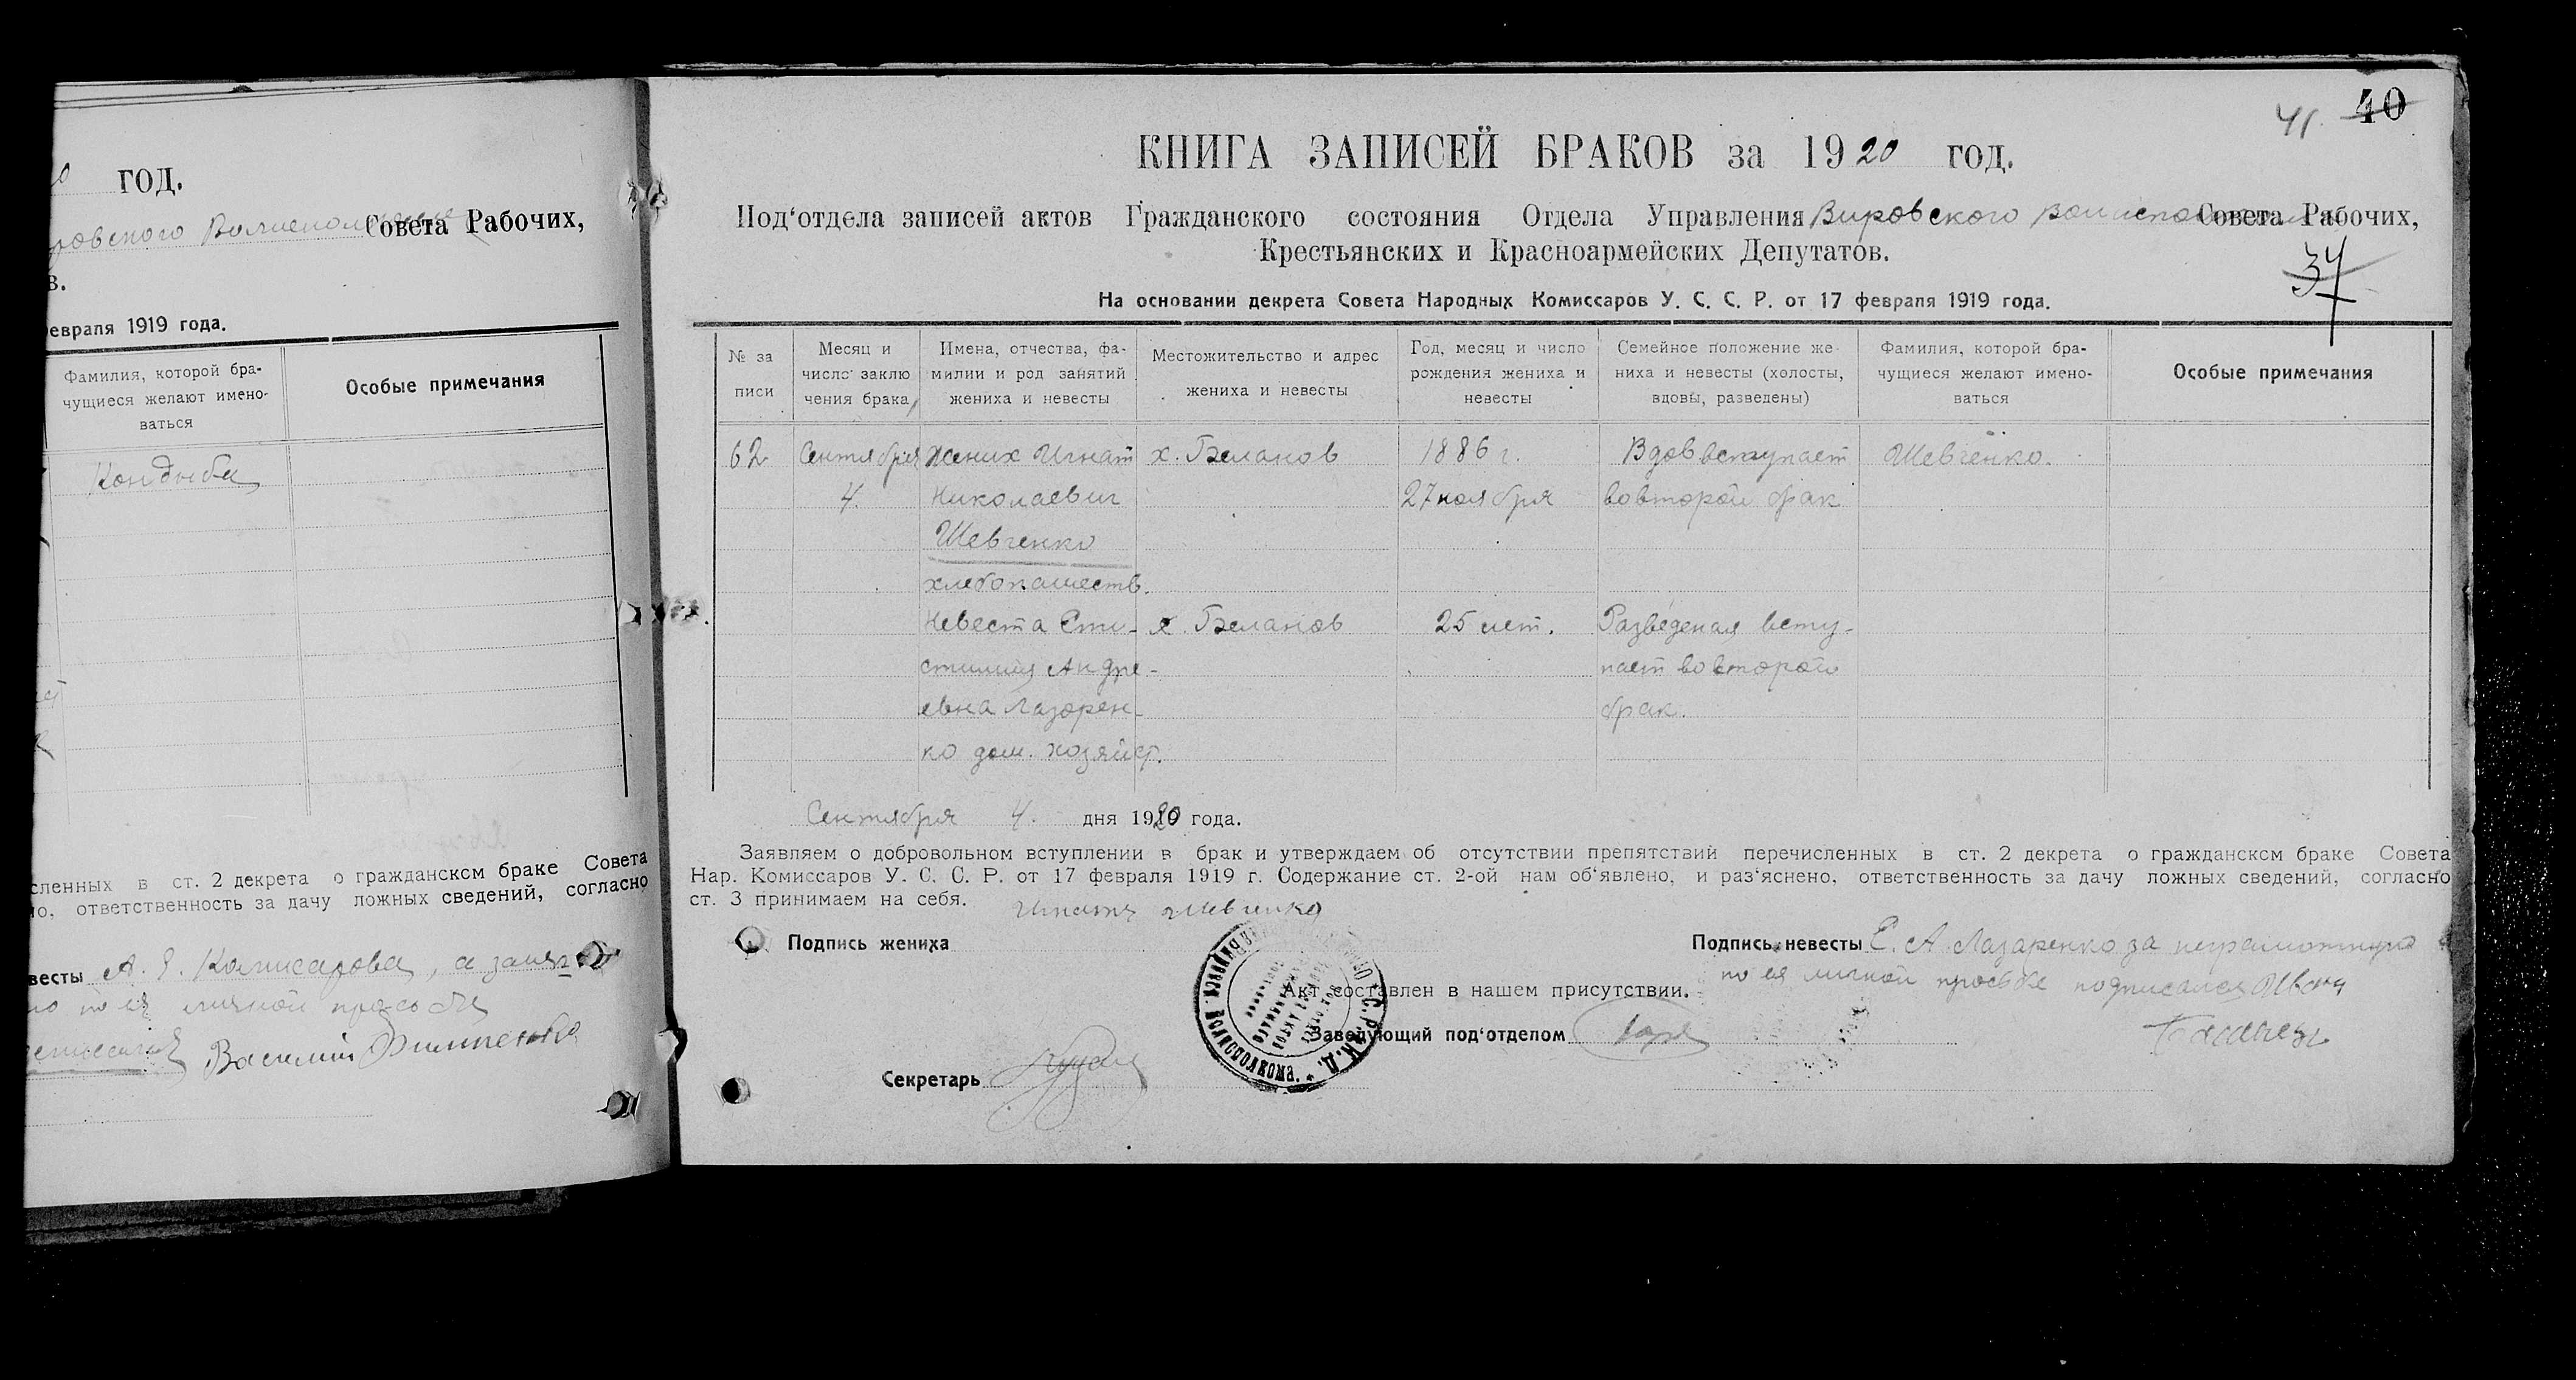 год.
Совета Рабочих,
в.
февраля 1919 года.
Фамилия, которой бра-
чущиеся желают имено-
ваться
Особые примечания
Кондыба
сленных в ст. 2 декрета о гражданскcм браке Совета
но, ответственность за дачу ложных сведений, согласно
весты А. Я. Комисарова, а за
по ея личной просьбе
Василий Филипенко
41. 40
КНИГА ЗАПИСЕЙ БРАКОВ за 1920 год.
Под'отдела записей актов Гражданского состояния Отдела Управления Вировского Волисполкома Совета Рабочих,
Крестьянских и Красноармейских Депутатов.
37
На основании декрета Совета Народных Комиссаров У. С. С. Р. от 17 февраля 1919 года.
№ за
писи
Месяц и
число заклю
чения брака
Имена, отчества, фа-
милии и род занятий
жениха и невесты
Местожительство и адрес
жениха и невесты
Год, месяц и число
рождения жениха и
невесты
Семейное положение же
ниха и невесты (холосты,
вдовы, разведены)
Фамилия, которой бра-
чущиеся желают имено-
ваться
Особые примечания
62 Сентября Жених Игнат х. Беланов 1886 г. Вдов вступает Шевченко.
4. Николаевич 27 ноября во второй брак
Шевченко
хлебопашеств.
Невеста х. Беланов 25 лет. Разведеная всту-
Андре- пает во второй
евна Лазарен- брак.
ко дом. хозяйст.
Сентября 4. дня 1920 года.
Заявляем о добровольном вступлении в брак и утверждаем об отсутствии препятствий перечисленных в ст. 2 декрета о гражданскcм браке Совета
Нар. Комиссаров У. С. С. Р. от 17 февраля 1919 г. Содержание ст. 2-ой нам об'явлено, и раз'яснено, ответственность за дачу ложных сведений, согласно
ст. 3 принимаем на себя.
Игнат Шевченко
Подпись жениха
Подпись невесты Е. А. Лазаренко за неграмотную
по ея личной просьбе подписался Иван
Акт составлен в нашем присутствии.
Заведующий под'отделом
Секретарь